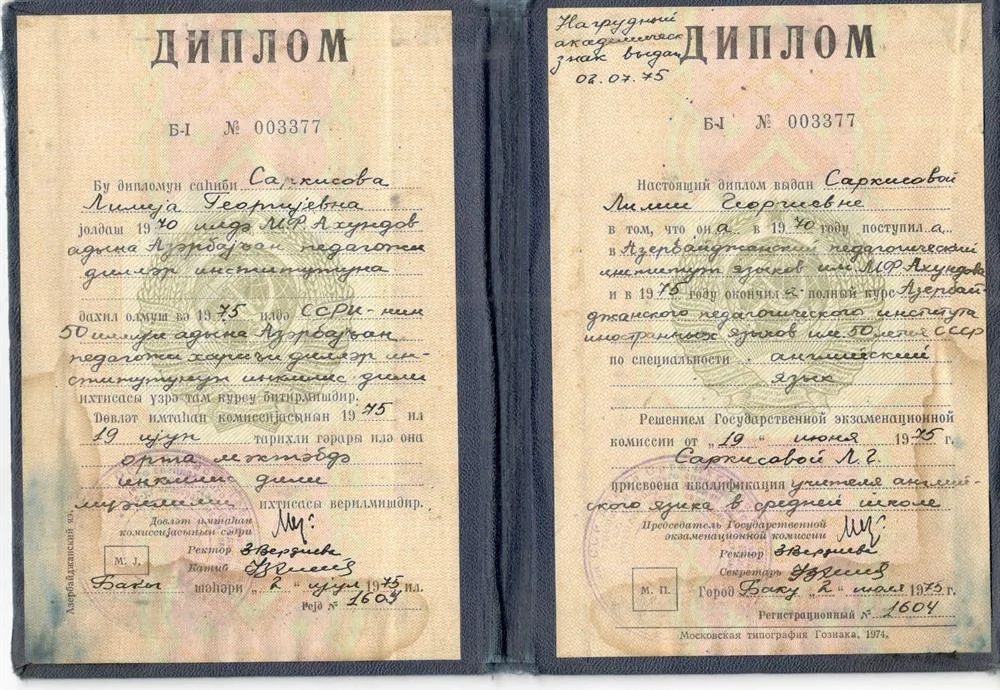 ДИПЛОМ
Б-I № 003377
Бу дипломун саһиби Саркисова
Лилија Георгијевна
јолдаш 1970 илдә М Ф Ахундов
адына Азәрбајҹан педагожи
дилләр институтуна
дахил олмуш вә 1975 илдә ССРИ-нин
50 иллији адына Азәрбајҹан
педагожи хариҹи дилләр ин-
ститутунун инҝилис дили
ихтисасы үзрә там курсу битирмишдир.
Дөвләт имтаһан комиссијасынын 1975 ил
19 ијун тарихли гәрары илә она
орта мәктәбдә
инҝилис дили
мүәллими ихтисасы верилмишдир.
Довләт имтаһан
комиссијасынын сәдри
Ректор
Катиб
М. Ј.
Бакы шәһәри „2“ ијул 1975 ил.
Реј.№ 1604
Азербайджанский яз.
Нагрудный
академическ
знак выдан
02.07.75
ДИПЛОМ
Б-I № 003377
Настоящий диплом выдан Саркисовой
Лилии Георгиевне
в том, что он а в 1970 году поступил а
в Азербайджанский педагогический
институт языков им. М Ф Ахундова
и в 1975 году окончил а полный курс Азербай-
джанского педагогического института
иностранных языков им. 50 летия СССР
по специальности английский
язык
Решением Государственной экзаменационной
комиссии от „19“ июня 1975 г.
Саркисовой Л. Г.
присвоена квалификация учителя англий-
ского языка в средней школе
Председатель Государственной
экзаменационной комиссии
Ректор
Секретарь
М. П.
Город Баку „2“ июля 1975 г.
Регистрационный № 1604
Московская типография Гознака, 1974.